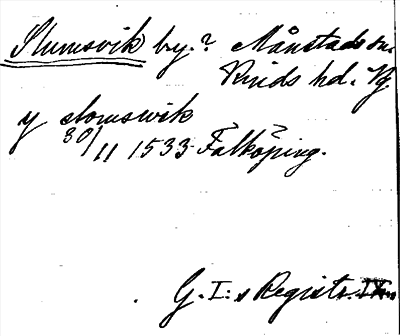 Slumsvik by.? Månstads sn.
Kinds hd. Vg
y slomswik
30/11 1533 Falköping.
G. I:s Registr.